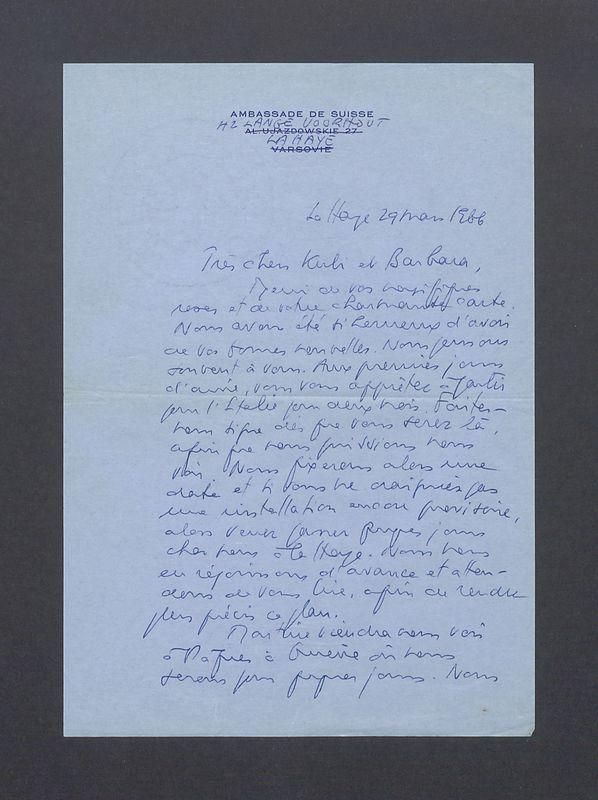 AMBASSADE DE SUISSE
42 LANGE VOORHOUT
AL. UJAZDOWSKIE 27
LA HAYE
VARSOVIE
La Haye 29 mars 1966
Très chers Kubi et Barbara,
Merci de vos magnifiques
roses et de votre charmante carte.
Nous avons été si heureux d'avoir
de vos bonnes nouvelles. Nous pensons
souvent à vous. Aux premiers jours
d'avril, vous vous apprêtez à partir
pour l'Italie pour deux mois. Faites-
nous signe dès que vous serez là,
afin que nous puissions nous
voir. Nous fixerons alors une
date et si vous ne craignez pas
une installation encore provisoire,
alors venez passer quelques jours
chez nous à La Haye. Nous nous
en réjouissons d'avance et atten-
dons de vous lire, afin de rendre
plus précis ce plan.
viendra nous voir
à Pâques à où nous
serons pour quelques jours. Nous